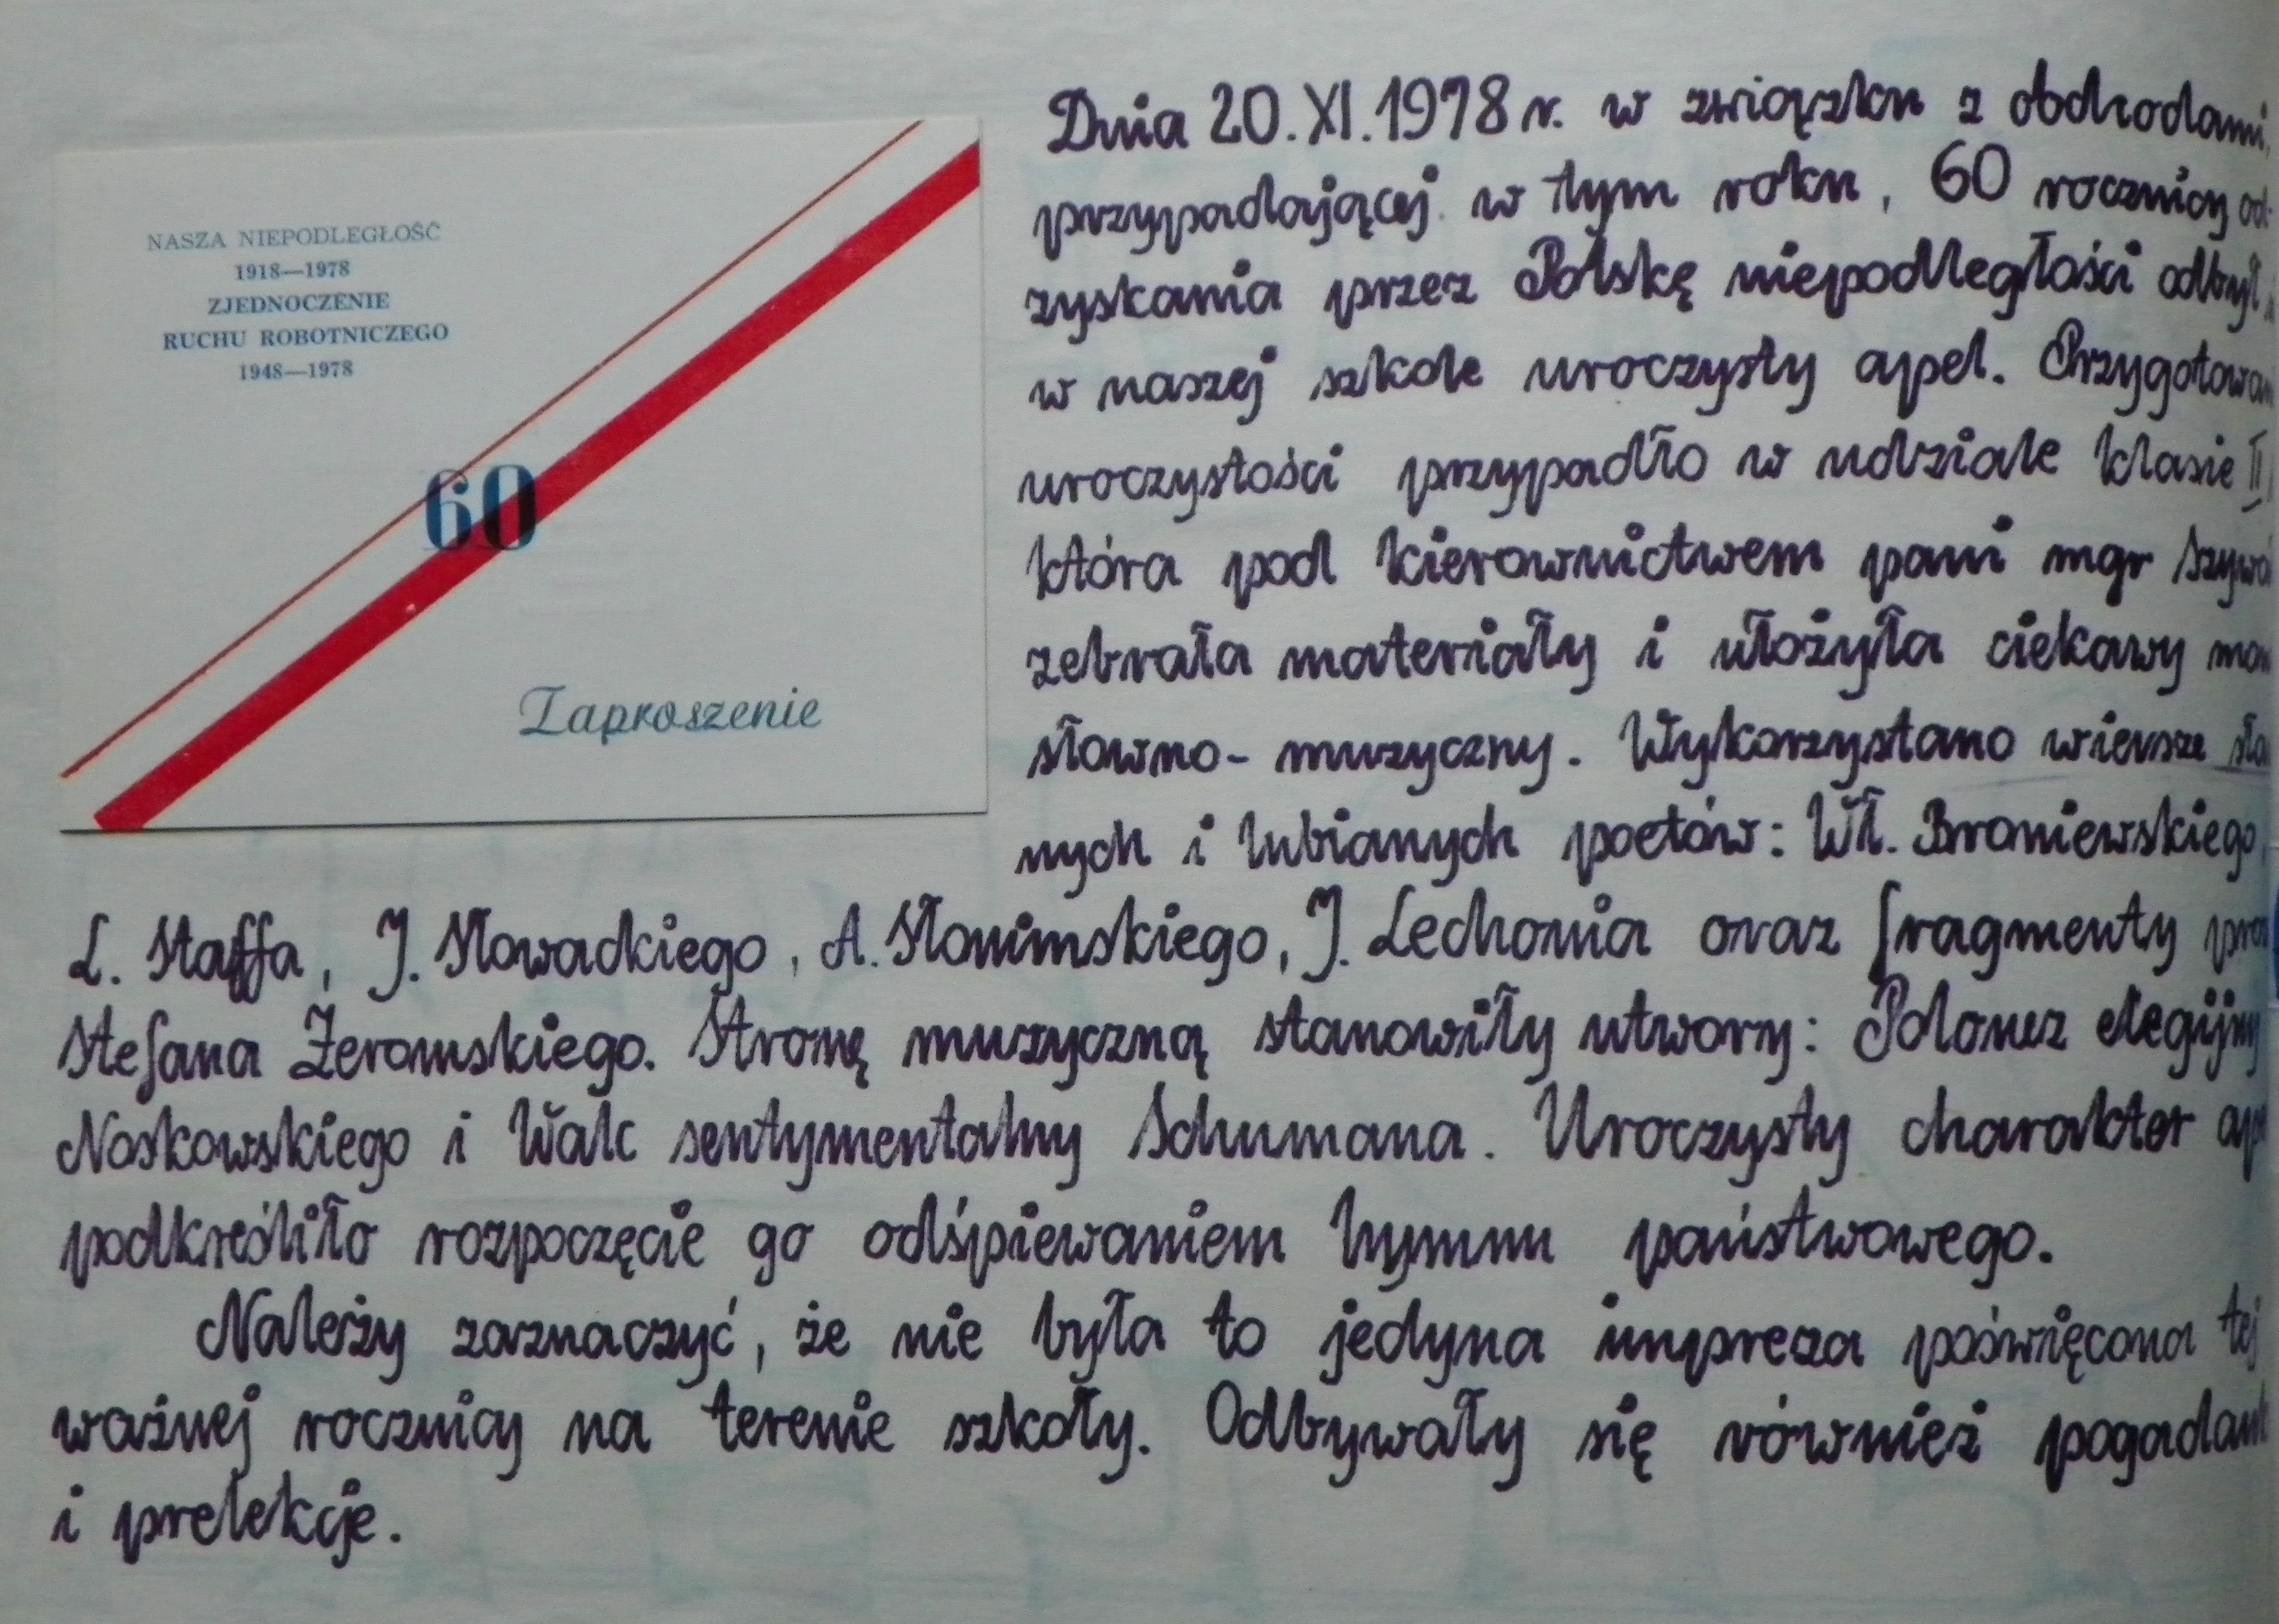 NASZA NIEPODLEGŁOŚĆ
1918—1978
ZJEDNOCZENIE
RUCHU ROBOTNICZEGO
1948—1978
60
Zaproszenie
Dnia 20.XI.1978 r. w związku z obchodami,
przypadającej w tym roku, 60 rocznicy od-
zyskania przez Polskę niepodległości odbył
w naszej szkole uroczysty apel. Przygotowan
uroczystości przypadło w udziale klasie
która pod kierownictwem pani mgr
zebrała materiały i ułożyła ciekawy
słowno-muzyczny. Wykorzystano wiersze
nych i lubianych poetów: Wł. Broniewskiego,
L. Staffa, J. Słowackiego, A. Słonimskiego, J. Lechonia oraz fragmenty
Stefana Żeromskiego. Stronę muzyczną stanowiły utwory: Polonez elegijny
Noskowskiego i Walc sentymentalny Schumana. Uroczysty charakter
podkreśliło rozpoczęcie go odśpiewaniem hymnu państwowego.
Należy zaznaczyć, że nie była to jedyna impreza poświęcona tej
ważnej rocznicy na terenie szkoły. Odbywały się również
i prelekcje.